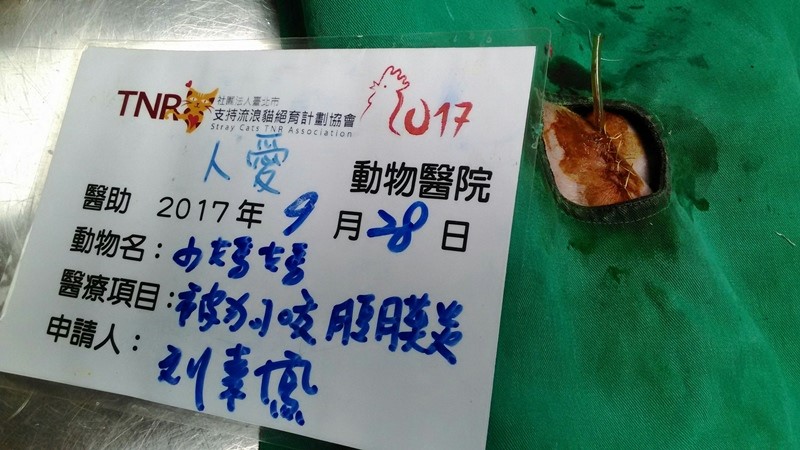 TNR 社團法人臺北市
支持流浪貓絕育計劃協會
Stray Cats TNR Association
2017
人愛 動物醫院
醫助 2017年 9月28日
動物名：
醫療項目：被狗咬 腹膜炎
申請人：刘素鳳